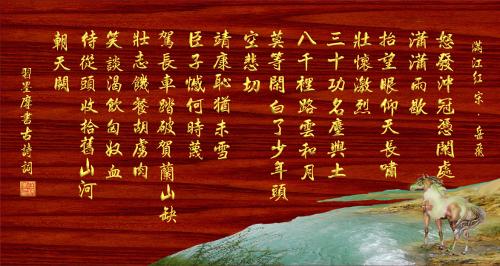 滿江紅 宋·岳飛
怒發沖冠憑闌處
瀟瀟雨歇
抬望眼仰天長嘯
壯懷激烈
三十功名塵與土
八千裡路雲和月
莫等閑白了少年頭
空悲切
靖康恥猶未雪
臣子憾何時蔑
駕長車踏破賀蘭山缺
壯志饑餐胡虜肉
笑談渴飲匈奴血
侍從頭收拾舊山河
朝天闕
習墨摩書古詩詞